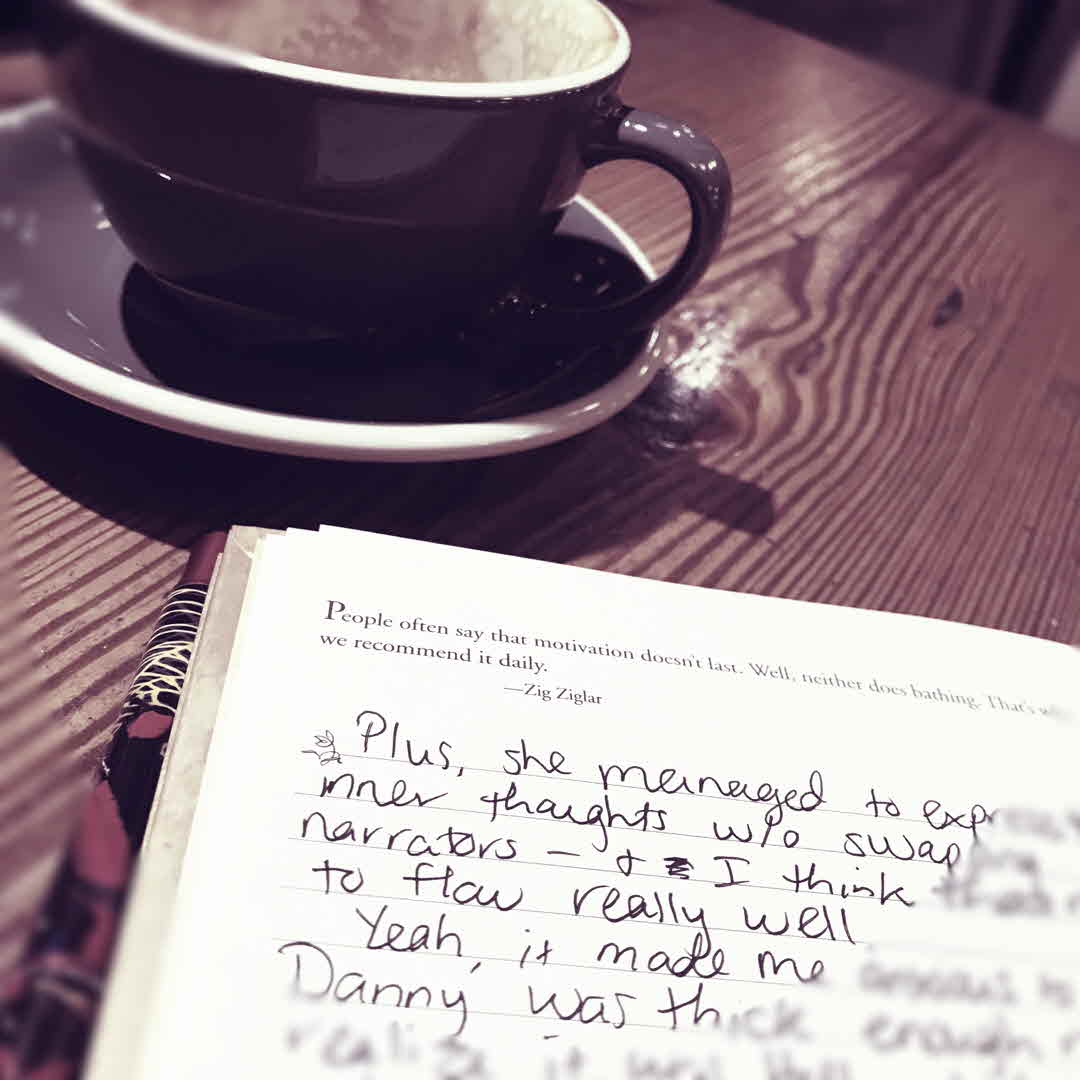 People often say that motivation doesn't last. Well, neither does bathing. That's
we recommend it daily.
—Zig Ziglar
Plus, she managed to
inner thoughts w/o
narrators – & I think
to flow really well
Yeah, it made me
Danny was thick enough
realize it